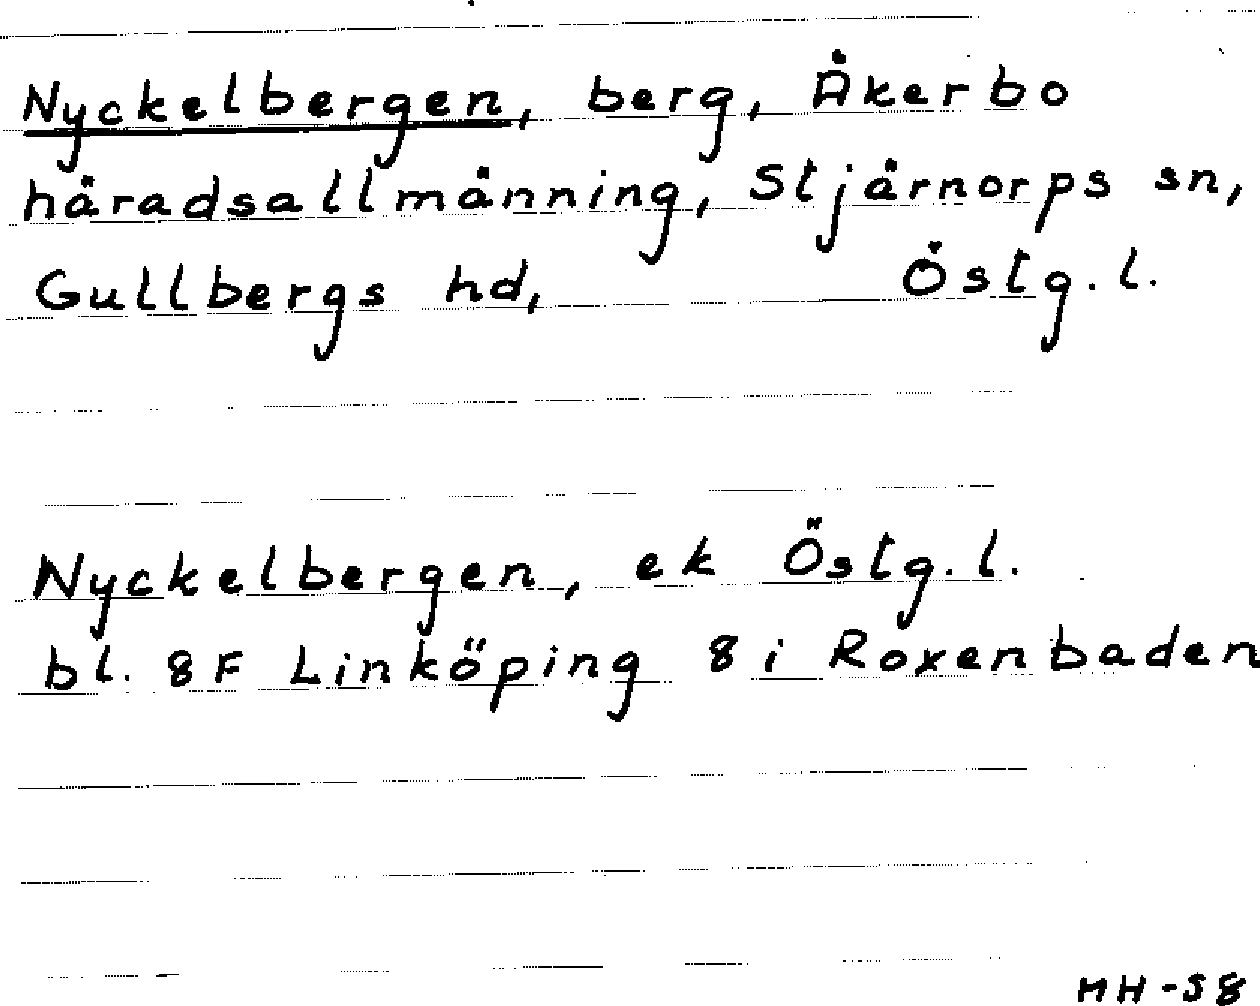 Nyckelbergen, berg, Åkerbo
häradsallmänning, Stjärnorps sn,
Gullbergs hd, Östg.l.
Nyckelbergen, ek Östg.l.
bl. 8F Linköping 8 i Roxenbaden
MH-58